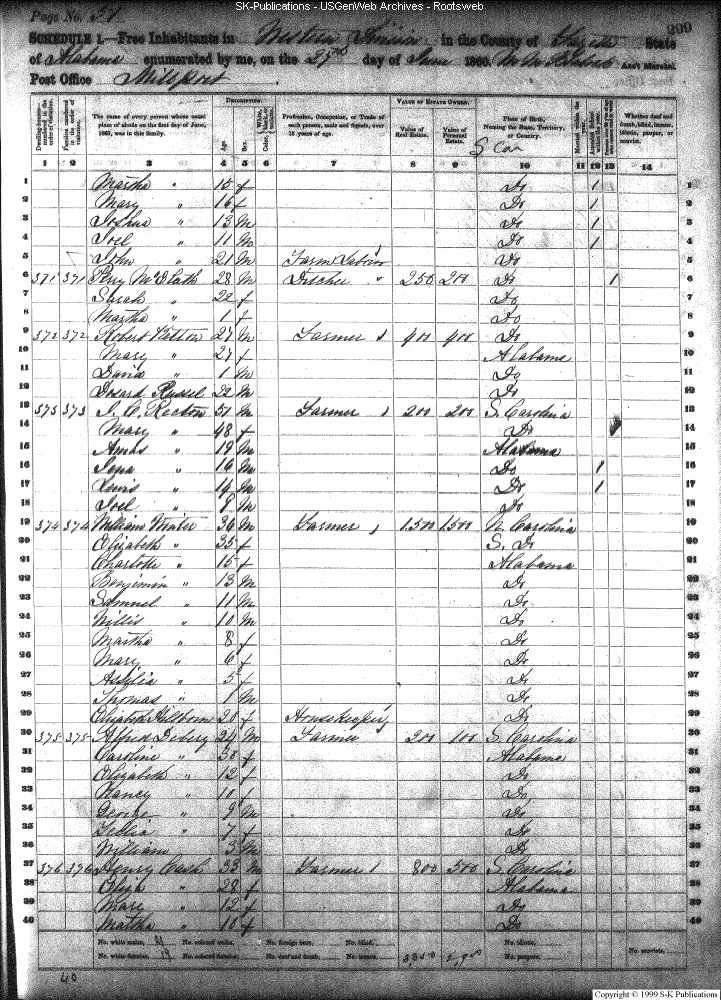 SK-Publications - USGenWeb Archives - Rootsweb
Page No. 51
299
SCHEDULE 1.—Free Inhabitants in Western Division in the County of Fayette State
of Alabama enumerated by me, on the 27th day of June 1860. Ass't Marshal.
Post Office Millport
Dwelling-houses— numbered in the order of visitation.
Families numbered in the order of visitation.
The name of every person whose usual place of abode on the first day of June, 1860, was in this family.
DESCRIPTION.
Age. Sex. Color, White, black, or mulatto.
Profession, Occupation, or Trade of each person, male and female, over 15 years of age.
VALUE OF ESTATE OWNED.
Value of Real Estate. Value of Personal Estate.
Place of Birth, Naming the State, Territory, or Country.
Married within the year.
Attended School within the year.
Whether deaf and dumb, blind, insane, idiotic, pauper, or convict.
S Car
1 2 3 4 5 6 7 8 9 10 11 12 13 14
1 Martha " 18 f Do 1 1
2 Mary " 16 f Do 1 2
3 Joshua " 13 m Do 1 3
4 Joel " 11 m Do 1 4
5 John " 21 m Farm Labour Do 5
6 371 371 28 m " 250 200 Do 1 6
7 Sarah " 22 f Do 7
8 Martha " 1 f Do 8
9 372 372 Robert 27 m Farmer 400 400 Do 9
10 Mary " 27 f Alabama 10
11 David " 1 m Do 11
12 Russel 22 m Do 12
13 373 373 J. C. Rector 51 m Farmer 200 200 S. Carolina 13
14 Mary " 48 f Do 14
15 Amos " 19 m Alabama 15
16 " 16 m Do 1 16
17 Lewis " 14 m Do 1 17
18 Joel " 8 m Do 18
19 374 374 William Winter 36 m Farmer 1.500 1500 N Carolina 19
20 Elizabeth " 35 f S. Do 20
21 Charlotte " 15 f Alabama 21
22 Benjimin " 13 m Do 22
23 Samuel " 11 m Do 23
24 Willis " 10 m Do 24
25 Martha " 8 f Do 25
26 Mary " 6 f Do 26
27 " 5 f Do 27
28 Thomas " 1 m Do 28
29 Elizabeth 20 f Housekeeper Do 29
30 375 375 Alfred 24 m Farmer 200 100 S. Carolina 30
31 Caroline " 30 f Alabama 31
32 Elizabeth " 12 f Do 32
33 Nancy " 10 f Do 33
34 George " 9 m Do 34
35 " 7 f Do 35
36 William 3 m Do 36
37 376 376 Henry Cash 33 m Farmer 800 500 S. Carolina 37
38 Eliza " 28 f Alabama 38
39 Mary " 12 f Do 39
40 Martha " 10 f Do 40
No. white males, 21 No. colored males, No. foreign born, No. blind, No. idiotic,
No. white females, 19 No. colored females, No. deaf and dumb, No. insane, No. paupers, No. convicts,
40
Copyright © 1999 S-K Publications